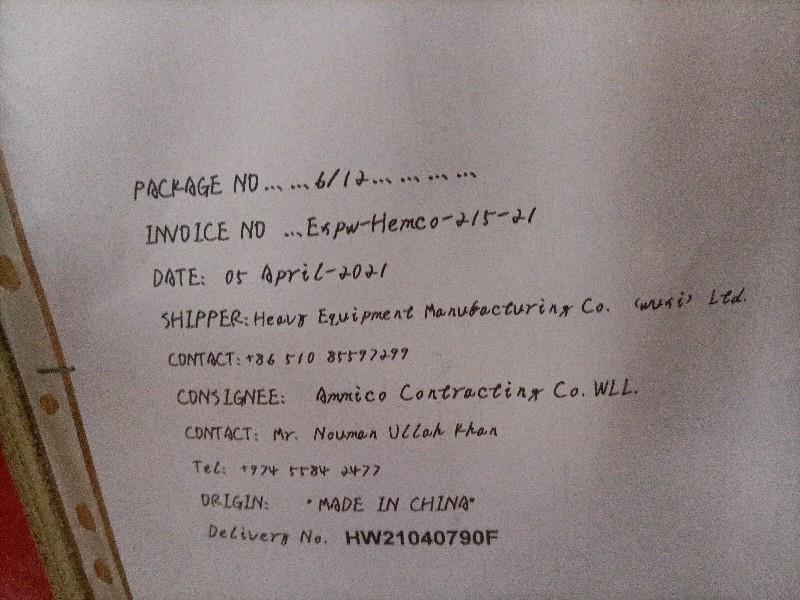 PACKAGE NO... ...6/12... ... ... ...
INVOICE NO ...Expw-Hemco-215-21
DATE: 05 April-2021
SHIPPER: Heavy Equipment Manufacturing Co. (wuxi) Ltd.
CONTACT: +86 510 85597299
CONSIGNEE: Ammico Contracting Co. WLL.
CONTACT: Mr. Nouman Ullah Khan
Tel: +974 5584 2477
ORIGIN: "MADE IN CHINA"
Delivery No. HW21040790F